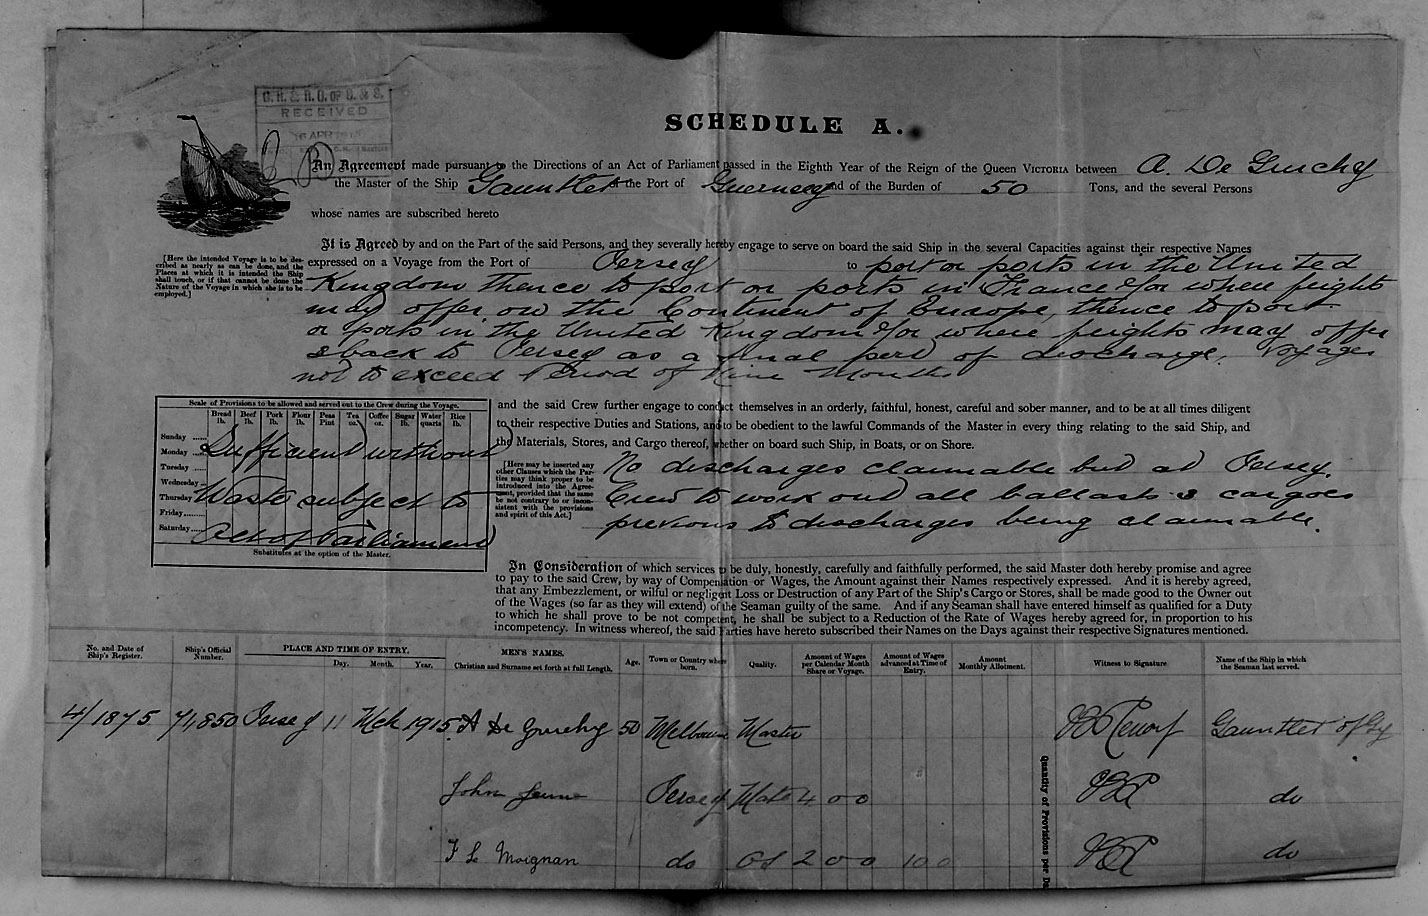 G. R. & R. O. OF S. & S.
RECEIVED
16 APR
SCHEDULE A.
An Agreement made pursuant to the Directions of an Act of Parliament passed in the Eighth Year of the Reign of the Queen VICTORIA between A. De Gruchy
the Master of the Ship Gauntlet of the Port of Guernsey and of the Burden of 50 Tons, and the several Persons
whose names are subscribed hereto
It is Agreed by and on the Part of the said Persons, and they severally hereby engage to serve on board the said Ship in the several Capacities against their respective Names
[Here the intended Voyage is to be des-
cribed as nearly as can be done, and the
Places at which it is intended the Ship
shall touch, or if that cannot be done the
Nature of the Voyage in which she is to be
employed.]
expressed on a Voyage from the Port of Jersey to port or ports in the United
Kingdom thence to port or ports in France &/or where freights
may offer on the Continent of Europe, thence to port
or ports in the United Kingdom &/or where freights may offer
& back to Jersey as a final port of discharge. Voyages
not to exceed Period of Nine Months
Scale of Provisions to be allowed and served out to the Crew during the Voyage.
Bread lb. Beef lb. Pork lb. Flour lb. Peas Pint Tea oz. Coffee oz. Sugar lb. Water quarts Rice lb.
Sunday
Monday
Tuesday
Wednesday
Thursday
Friday
Saturday
Sufficient without
Waste subject to
Act of Parliament
Substitutes at the option of the Master.
and the said Crew further engage to conduct themselves in an orderly, faithful, honest, careful and sober manner, and to be at all times diligent
to their respective Duties and Stations, and to be obedient to the lawful Commands of the Master in every thing relating to the said Ship, and
the Materials, Stores, and Cargo thereof, whether on board such Ship, in Boats, or on Shore.
[Here may be inserted any
other Clauses which the Par-
ties may think proper to be
introduced into the Agree-
ment, provided that the same
be not contrary to or incon-
sistent with the provisions
and spirit of this Act.]
No discharges claimable but at Jersey.
Crew to work out all ballasts & cargoes
previous to discharges being claimable.
In Consideration of which services to be duly, honestly, carefully and faithfully performed, the said Master doth hereby promise and agree
to pay to the said Crew, by way of Compensation or Wages, the Amount against their Names respectively expressed. And it is hereby agreed,
that any Embezzlement, or wilful or negligent Loss or Destruction of any Part of the Ship's Cargo or Stores, shall be made good to the Owner out
of the Wages (so far as they will extend) of the Seaman guilty of the same. And if any Seaman shall have entered himself as qualified for a Duty
to which he shall prove to be not competent, he shall be subject to a Reduction of the Rate of Wages hereby agreed for, in proportion to his
incompetency. In witness whereof, the said Parties have hereto subscribed their Names on the Days against their respective Signatures mentioned.
No. and Date of Ship's Register. Ship's Official Number. PLACE AND TIME OF ENTRY. Day. Month. Year. MEN'S NAMES. Christian and Surname set forth at full Length. Age. Town or Country where born. Quality. Amount of Wages per Calendar Month Share or Voyage. Amount of Wages advanced at Time of Entry. Amount Monthly Allotment. Witness to Signature Name of the Ship in which the Seaman last served.
4/1875 71,850 Jersey 11 Mch 1915 A De Gruchy 50 Melbourne Master Gauntlet of Gy
John Jersey Mate 4 0 0 do
F Le Moignan do OS 2 0 0 10 0 do
Quantity of Provisions per Da